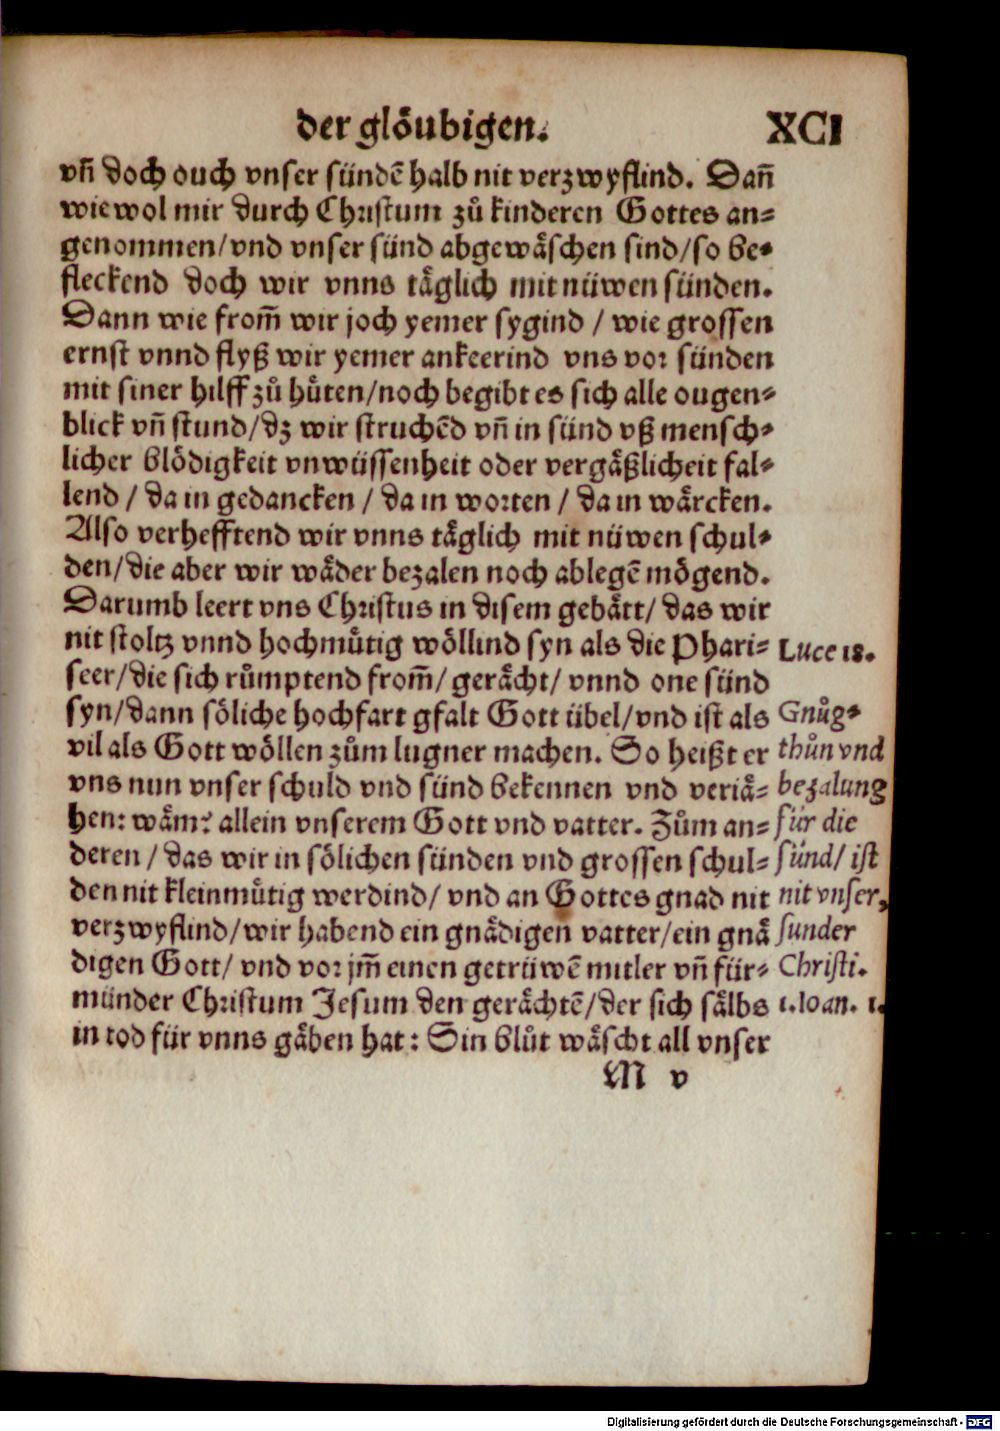 der glöubigen. XCI
vñ doch ouch vnser sündē halb nit verzwyflind. Dañ
wiewol mir durch Christum zů kinderen Gottes an=
genommen/vnd vnser sünd abgewäschen sind/so be=
fleckend doch wir vnns täglich mit nüwen sünden.
Dann wie from̄ wir joch yemer sygind / wie grossen
ernst vnnd flyß wir yemer ankeerind vns vor sünden
mit siner hilff zů hůten/noch begibt es sich alle ougen=
blick vñ stund/dz wir struchēd vñ in sünd vß mensch=
licher blödigkeit vnwüssenheit oder vergäßlicheit fal=
lend / da in gedancken / da in worten / da in wärcken.
Also verhefftend wir vnns täglich mit nüwen schul=
den/die aber wir wäder bezalen noch ablegē mögend.
Darumb leert vns Christus in disem gebätt/ das wir
nit stoltz vnnd hochmůtig wöllind syn als die Phari=
seer/die sich růmptend from̄/ gerächt/ vnnd one sünd
syn/dann söliche hochfart gfalt Gott übel/vnd ist als
vil als Gott wöllen zům lugner machen. So heißt er
vns nun vnser schuld vnd sünd bekennen vnd veriä=
hen: wäm? allein vnserem Gott vnd vatter. Zům an=
deren / das wir in sölichen sünden vnd grossen schul=
den nit kleinmůtig werdind/ vnd an Gottes gnad nit
verzwyflind/wir habend ein gnädigen vatter/ein gnä
digen Gott/ vnd vor jm̄ einen getrüwē mitler vñ für=
münder Christum Jesum den gerächtē/der sich sälbs
in tod für vnns gäben hat: Sin blůt wäscht all vnser
M v
Luce 18.
Gnůg=
thůn vnd
bezalung
für die
sünd/ ist
nit vnser,
sunder
Christi.
1.Ioan. 1.
Digitalisierung gefördert durch die Deutsche Forschungsgemeinschaft - DFG